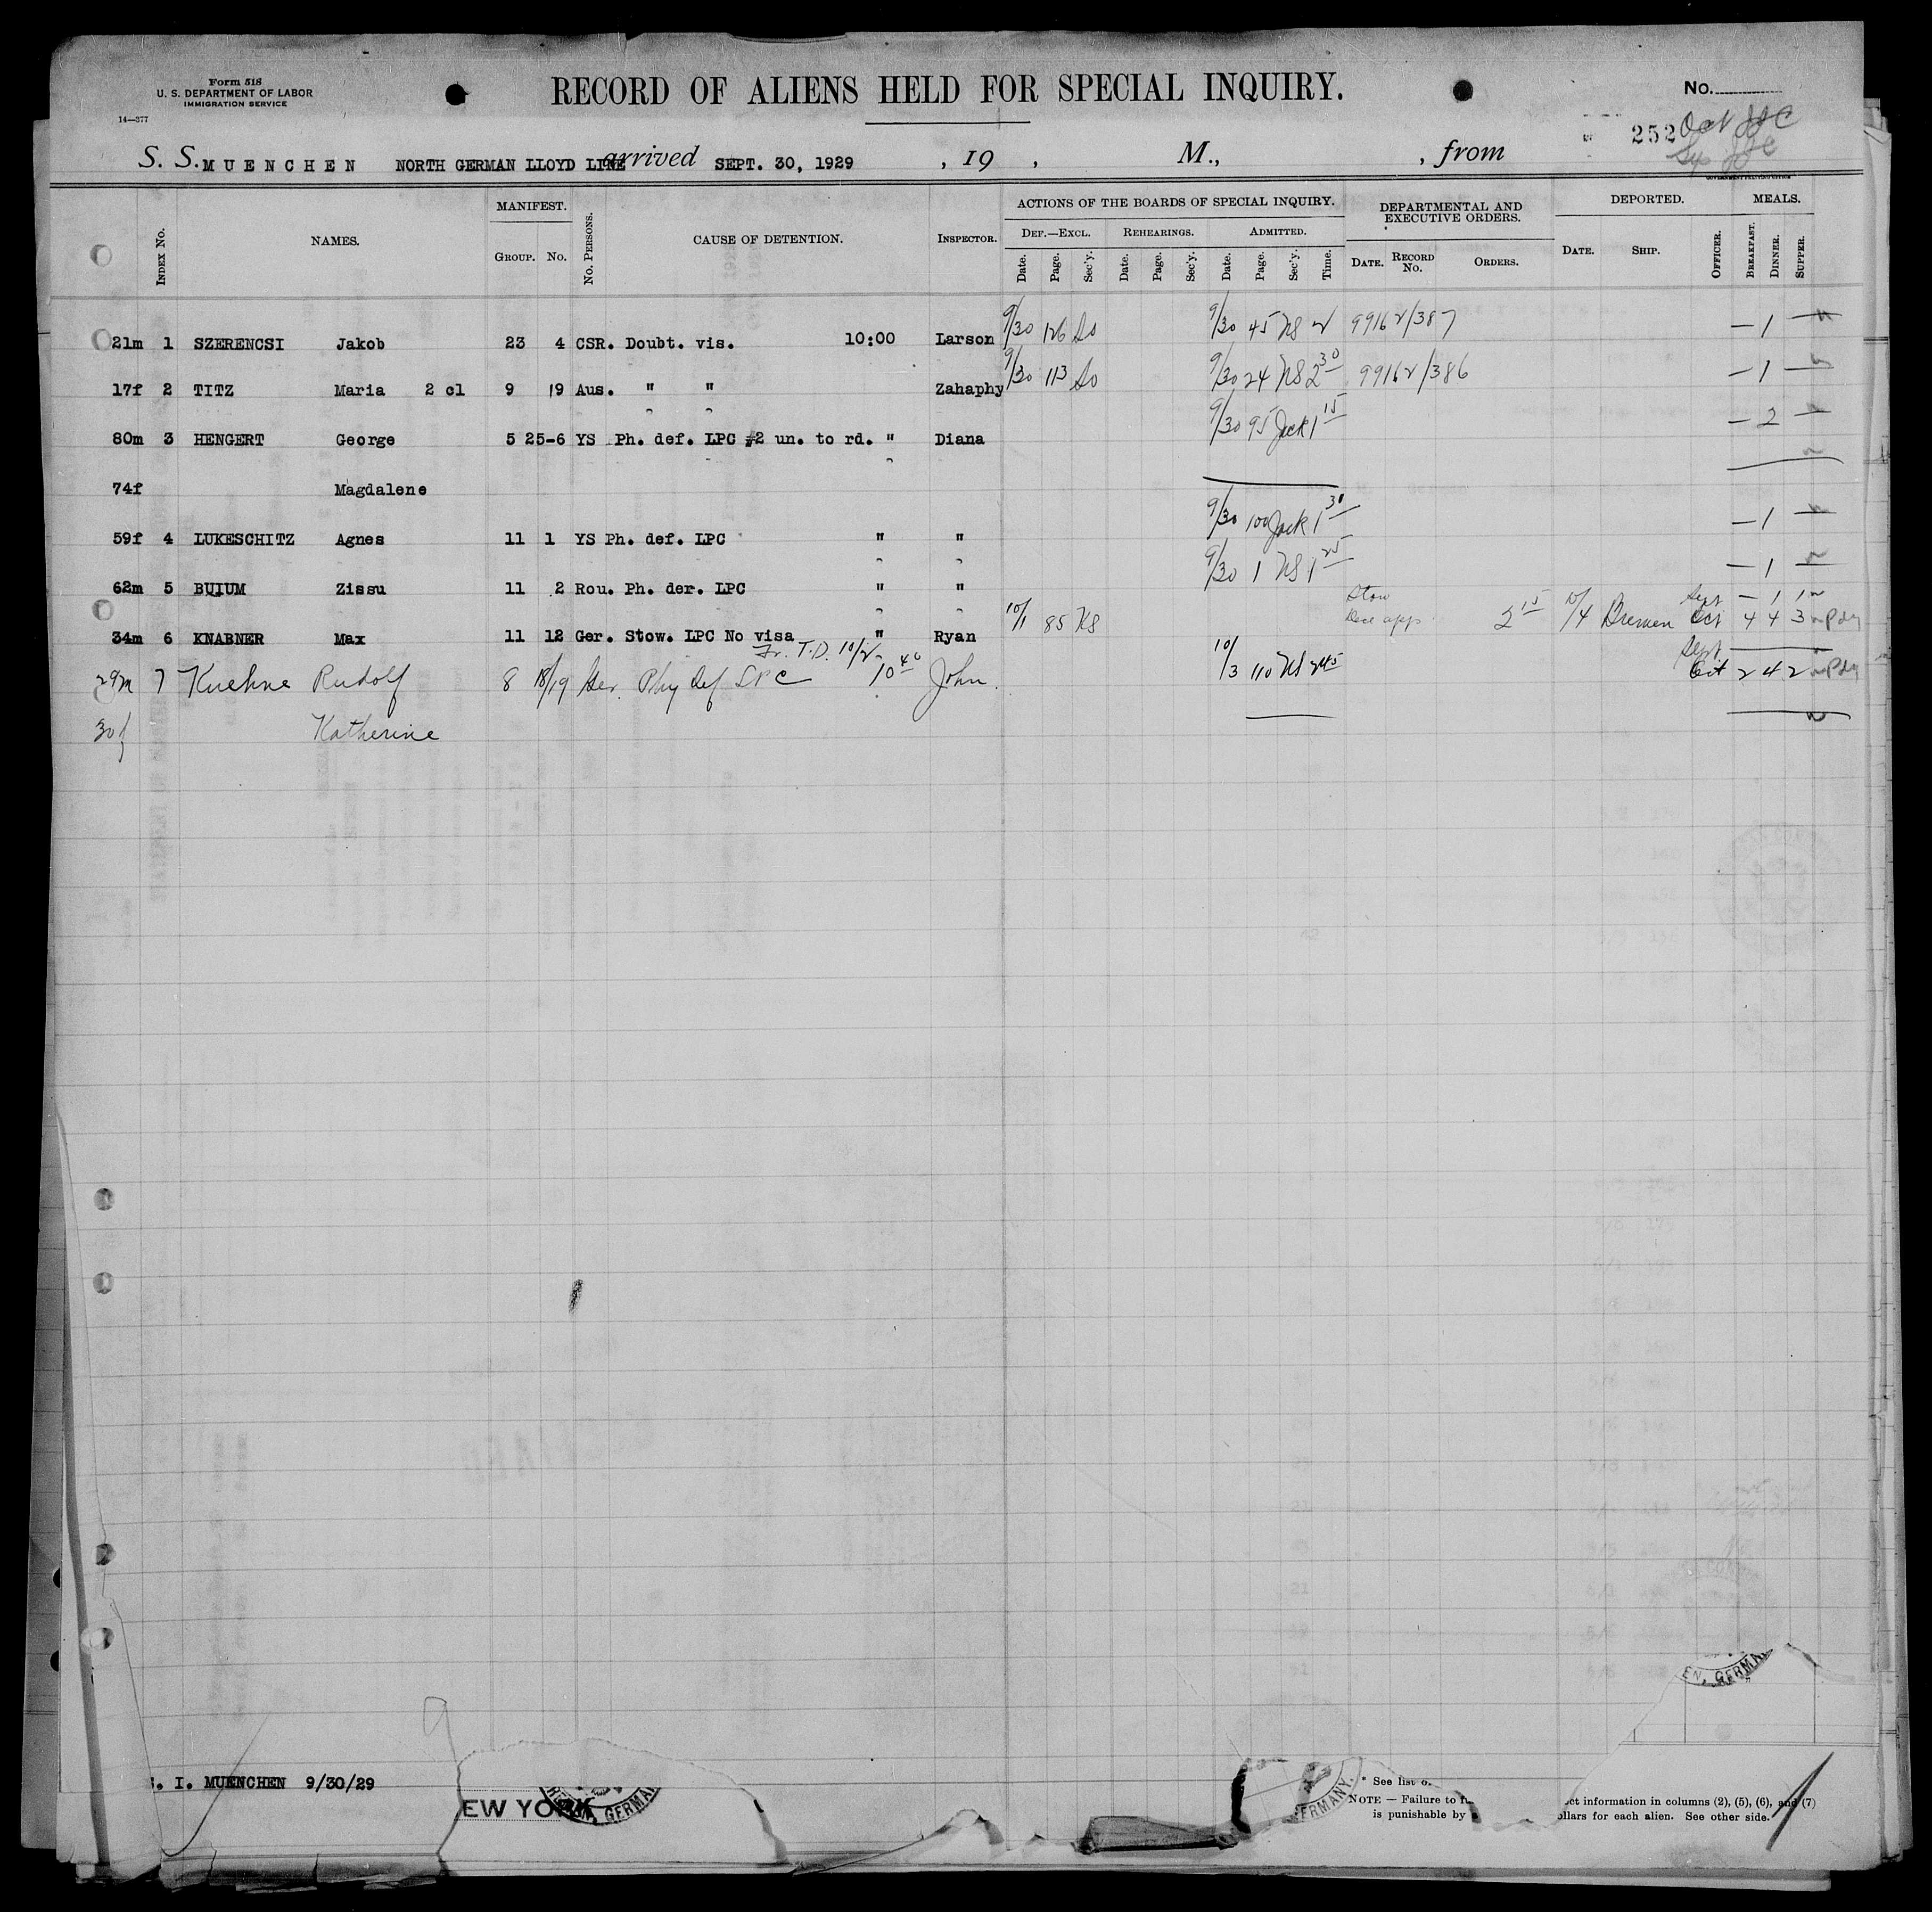 Form 518
U. S. DEPARTMENT OF LABOR
IMMIGRATION SERVICE
14—377
RECORD OF ALIENS HELD FOR SPECIAL INQUIRY.
No.
252
Oct
S. S. MUENCHEN NORTH GERMAN LLOYD LINE arrived SEPT. 30, 1929 , 19 , M., , from
INDEX No. NAMES. MANIFEST. GROUP. No. No. PERSONS. CAUSE OF DETENTION. INSPECTOR.
ACTIONS OF THE BOARDS OF SPECIAL INQUIRY. DEF.—EXCL. REHEARINGS. ADMITTED.
Date. Page. Sec'y. Date. Page. Sec'y. Date. Page. Sec'y. Time.
DEPARTMENTAL AND EXECUTIVE ORDERS. DATE. RECORD No. ORDERS.
DEPORTED. DATE. SHIP. OFFICER. MEALS. BREAKFAST. DINNER. SUPPER.
21m 1 SZERENCSI Jakob 23 4 CSR. Doubt. vis. 10:00 Larson 9/30 126 So 9/30 45 NS 2 99162/387 — 1 —
17f 2 TITZ Maria 2 cl 9 19 Aus. " " Zahaphy 9/30 113 So 9/30 24 NS 2 30 99162/386 — 1 —
80m 3 HENGERT George 5 25-6 YS Ph. def. LPC #2 un. to rd. " Diana 9/30 95 Jack 1 15 — 2 —
74f Magdalene
59f 4 LUKESCHITZ Agnes 11 1 YS Ph. def. LPC " " 9/30 100 Jack 1 30 — 1 —
62m 5 BUIUM Zissu 11 2 Rou. Ph. der. LPC " " 9/30 1 NS 1 25 — 1 —
34m 6 KNABNER Max 11 12 Ger. Stow. LPC No visa " Ryan 10/1 85 KS Stow 2 15 10/4 Bremen Sept — 1 1 Oct 4 4 3
Fr. T.D. 10/2
29m 7 Kuehne Rudolf 8 18/19 Ger. Phy Def LPC 10 40 John. 10/3 110 NS 2 45 Sept Oct 2 4 2
30f Katherine
. I. MUENCHEN 9/30/29
EW YORK
REMEN, GERMAN
ERMANY.
EN, GERMA
* See list o
NOTE — Failure to fu
is punishable by
ct information in columns (2), (5), (6), and (7)
ollars for each alien. See other side.